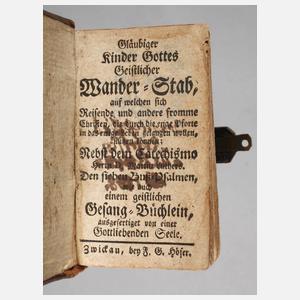 Gläubiger
Kinder Gottes
Geistlicher
Wander-Stab,
auf welchen sich
Reisende und andere fromme
Christen, die durch die enge Pforte
in das ewige Leben gelangen wollen,
stützen können:
Nebst dem Catechismo
Herrn D. Martin Luthers.
Den sieben Buß-Psalmen,
und auch
einem geistlichen
Gesang-Büchlein,
ausgefertiget von einer
Gottliebenden Seele.
Zwickau, bey F. G. Höfer.